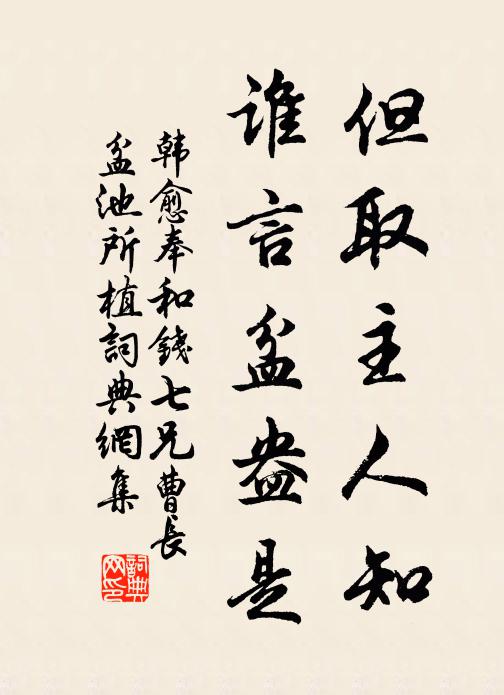 但取主人知
谁言盆盎是
韩愈奉和錢七兄曹长
盆池所植詞典網集
詞典
网印